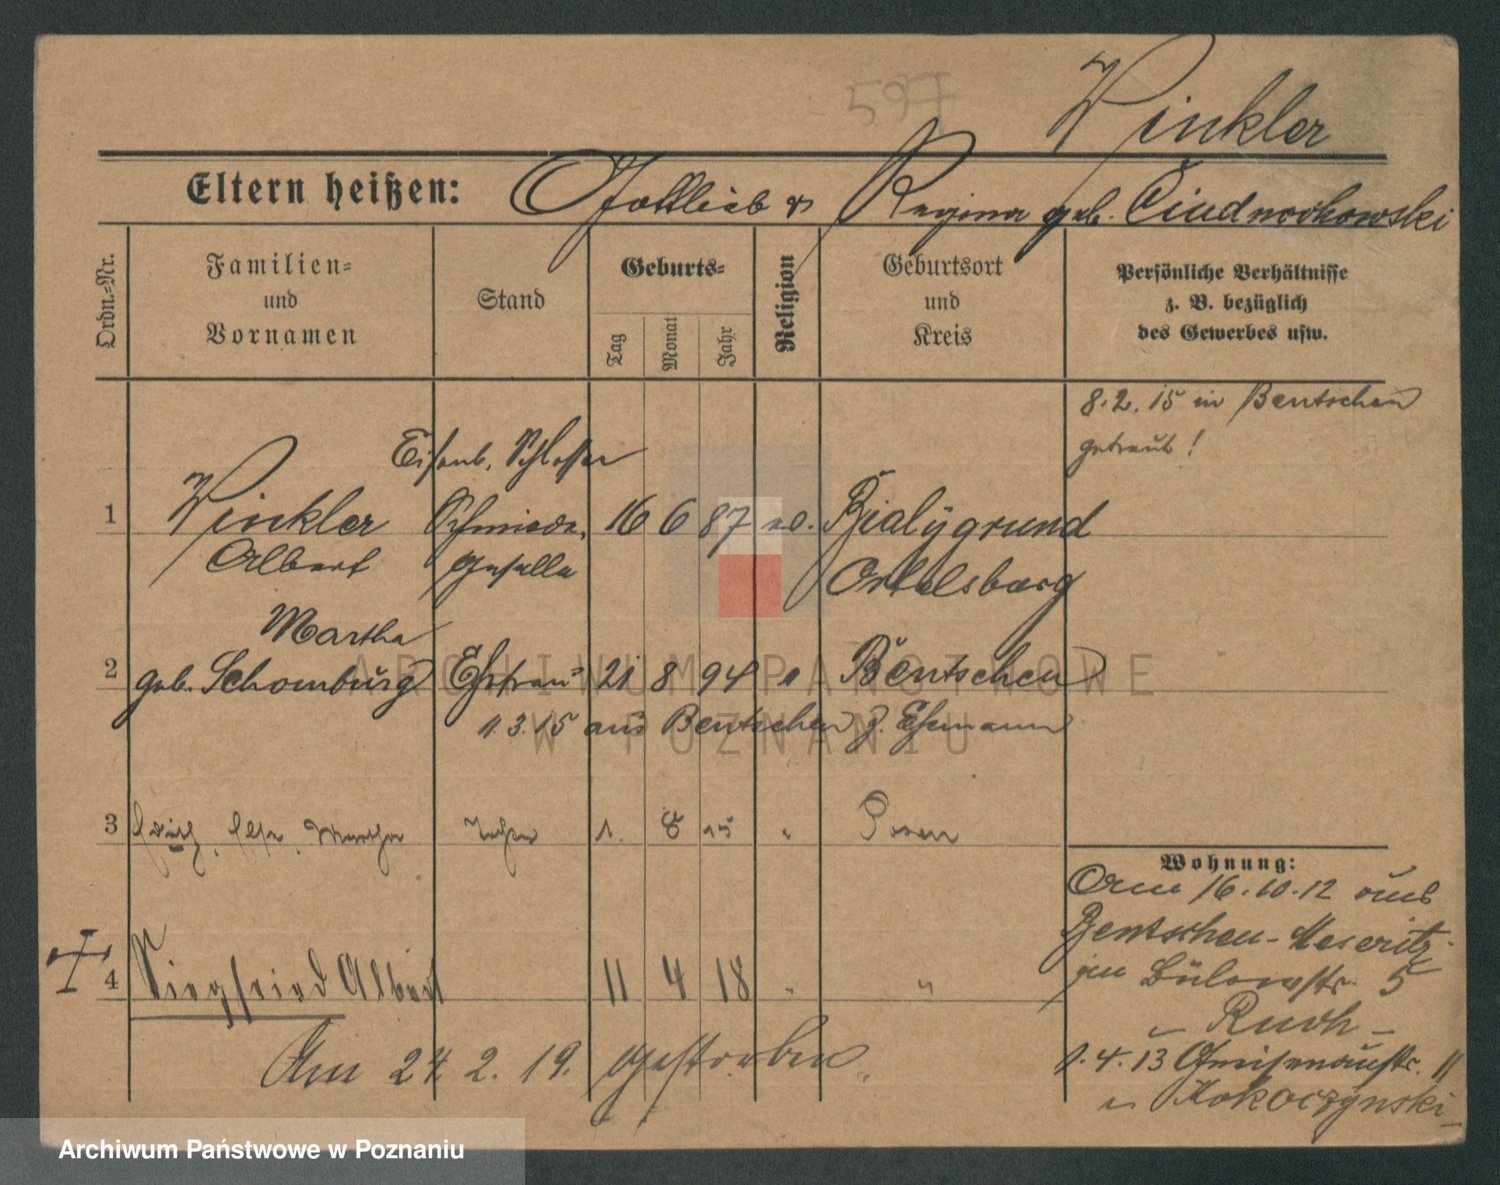 597
Winkler
Eltern heißen: Gottlieb u Regina geb.
Ordn.-Nr.
Familien- und Vornamen
Stand
Geburts-
Tag
Monat
Jahr
Religion
Geburtsort und Kreis
Persönliche Verhältnisse
z. B. bezüglich
des Gewerbes usw.
8.2.15 in Bentschen
getraut!
Eisenb. Schlosser
1 Winkler Schmiede- 16 6 87 Bialygrund
Albert geselle Ortelsburg
Martha
2 geb. Schomburg Ehefrau 21 8 94 Bentschen
11.3.15 aus Bentschen z. Ehemann
3 Else, Martha Tochter 1. 8 15 " Posen
4 Siegfried Albert 11 4 18 " "
Am 24. 2. 19. gestorben.
Wohnung:
Am 16.10.12 aus
Bentschen-Meseritz
in Bülowstr. 5
1.4.13 Gneisenaustr. 11
ARCHIWUM PAŃSTWOWE
W POZNANIU
Archiwum Państwowe w Poznaniu